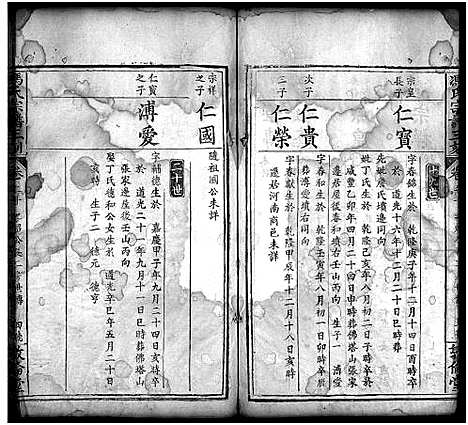 宗皇長子
仁寶
字春錦生於 乾隆庚子年十二月十四日酉時卒
於 道光十六年十二月二十一日巳時葬
姚姚詹氏墳邊同向
妣丁氏生於 乾隆己亥年八月初二日子時卒
咸豐乙卯年四月二十四日申時葬佛塔山張家
邊屋後壬山丙向 生子一 溥愛
次子
仁貴
字春和生於 乾隆壬寅年八月初一日卯時卒
葬溥愛墳右同向
三子
仁榮
字春猷生於 乾隆甲辰年十二月十八日亥時
遷居河南商邑未詳
宗祥之子
仁國
隨祖國公未詳
二十世
仁寶之子
溥愛
字輔德生於 嘉慶甲子年九月二十四日亥時卒
於 道光二十一年九月十一日巳時葬佛塔山
張家邊屋後壬山丙向
娶丁氏進和公女生於 道光辛巳年五月二十日
亥時 生子二 德元 德亨